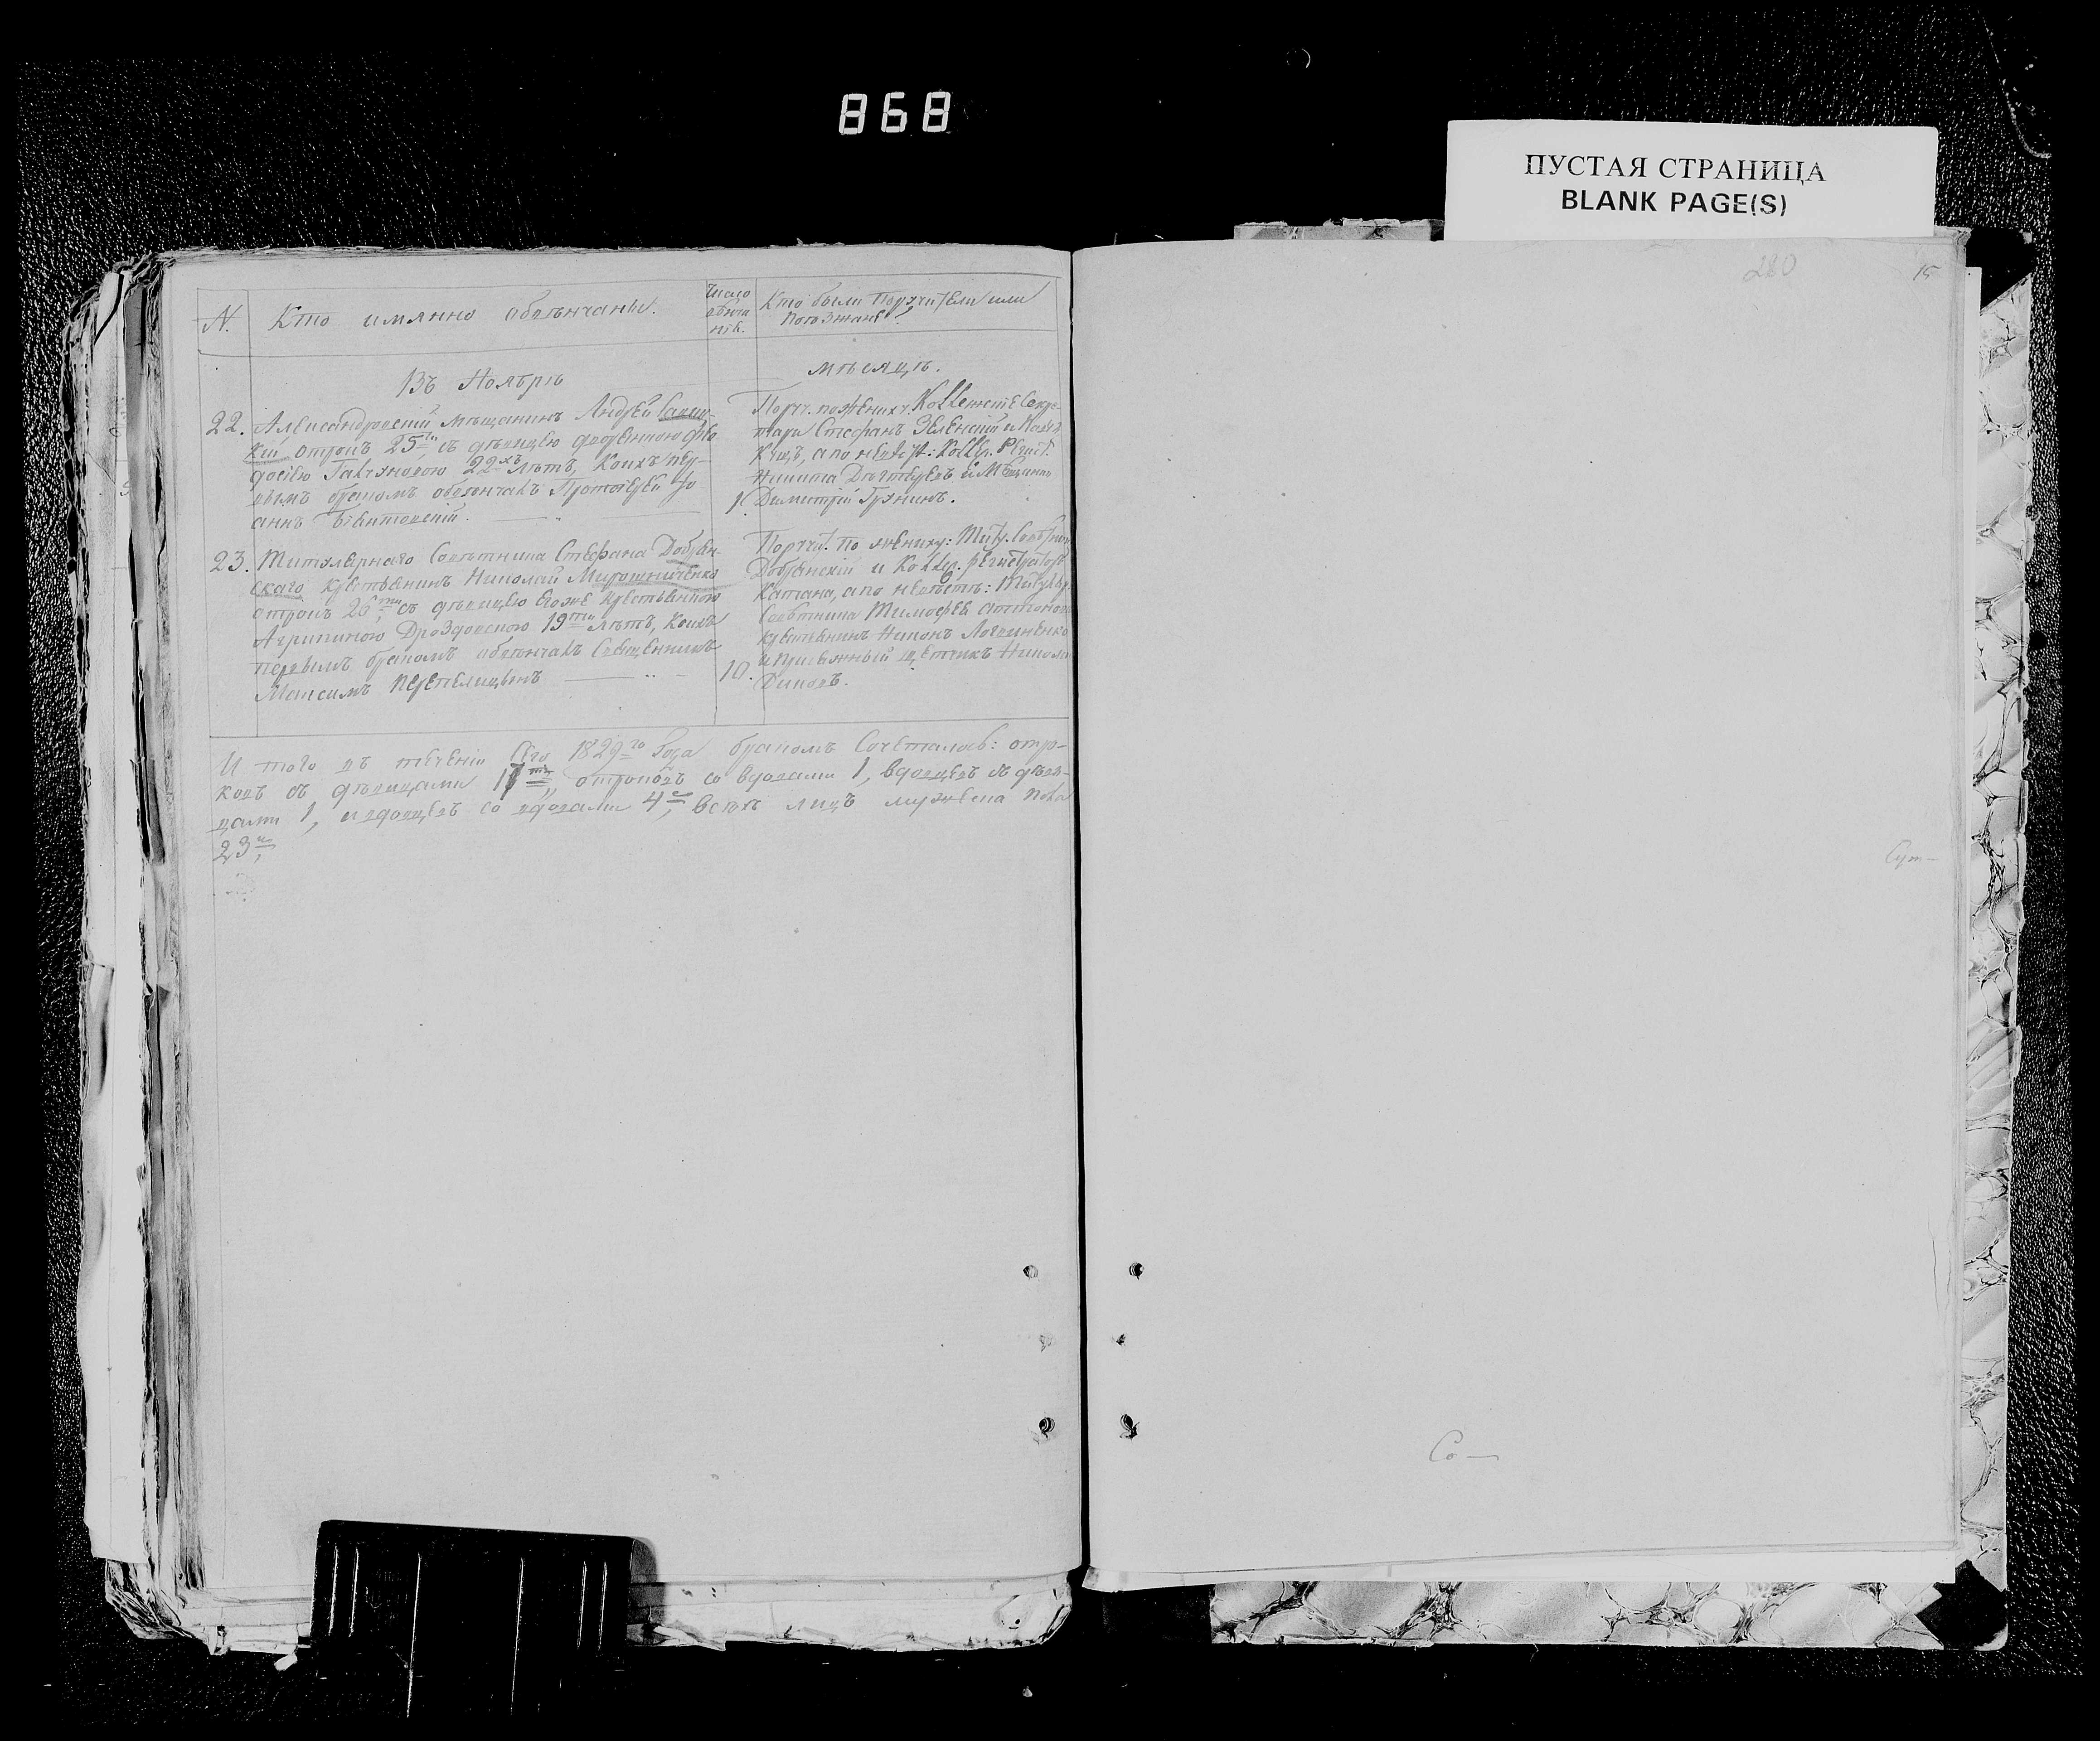 868
ПУСТАЯ СТРАНИЦА
BLANK PAGE(S)
280
15
N. Кто имянно обвѣнчаны.
Число
Кто были Поручители или
Поѣзжаны
Въ Ноябрѣ
мѣсяцѣ.
22. Александровскій мѣщанинъ Андрей
кій отрокъ 25 съ дѣвицею дворянкою Ѳео
досіею 22хъ лѣтъ, коихъ пер-
вымъ бракомъ обвѣнчалъ Протоіерей Іо
аннъ
Поруч. по женихѣ: Коллежскіе Секре-
тарь Стефанъ Зеленскій и
Купцъ, а по невѣстѣ: Коллеж. Регист.
Никита и Мѣщанинъ
1. Димитрій Грунинъ.
23. Титулярнаго Совѣтника Стефана Добрян-
скаго крестьянинъ Николай Мирошниченко
отрокъ 26ти съ дѣвицею Егоже крестьянкою
Агрипиною Дроздовскою 19ти лѣтъ, коихъ
первымъ бракомъ обвѣнчалъ Священникъ
Максимъ Перепелицынъ
10.
Поручит. по жениху: Титу. Совѣтник
Добрянскій и Коллеж. регистраторъ
Катана, а по невѣстѣ: Титуляр.
Совѣтника Тимофея Антонов
крестьянинъ Никонъ Логвиненко
и присяжный щетчикъ Никола
Диковъ.
И того въ теченіи Сего 1829го Года бракомъ Сочеталось: отро-
ковъ съ дѣвицами 17ть, отроковъ со вдовами 1, вдовцевъ съ дѣви-
цами 1, и вдовцевъ со вдовами 4, всѣхъ лицъ мужеска пола
23
Сут-
Со-